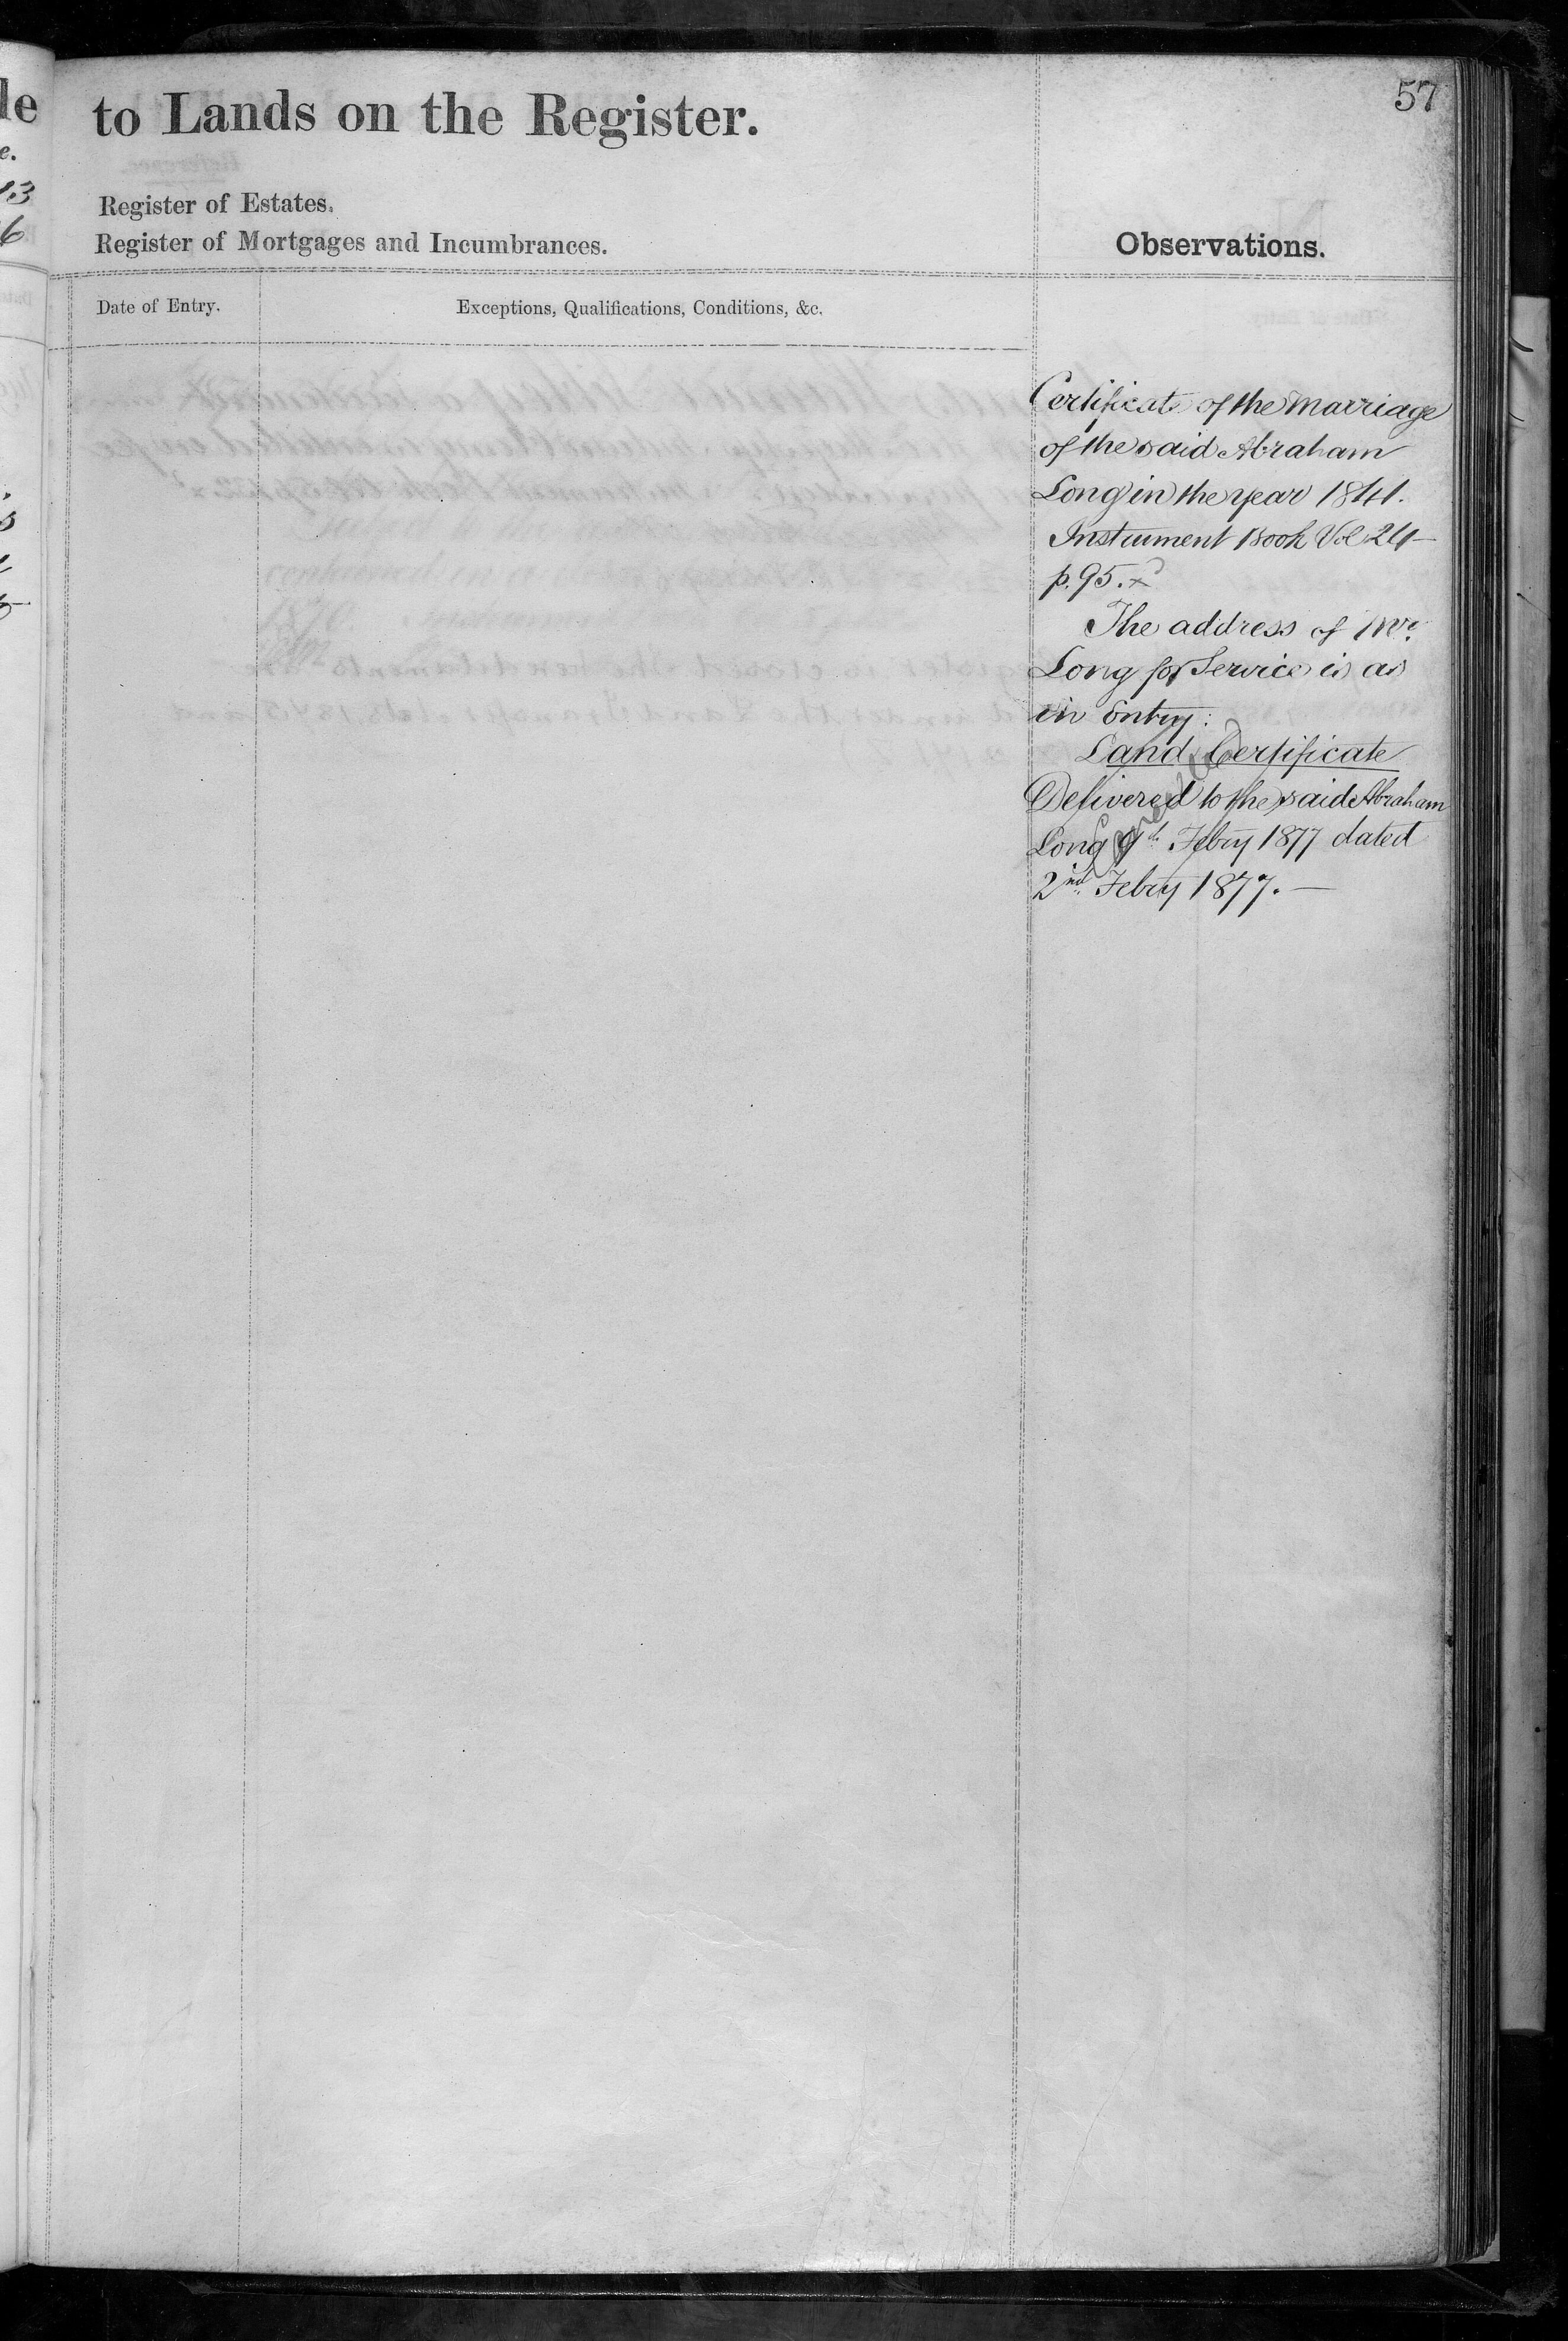 57
to Lands on the Register.
Register of Estates.
Register of Mortgages and Incumbrances.
Observations.
Date of Entry.
Exceptions, Qualifications, Conditions, &c.
Certificate of the Marriage
of the said Abraham
Long in the year 1841.
Instrument Book Vol 24
p. 95.
The address of Mr.
Long for Service is as
in Entry:
Land Certificate
Delivered to the said Abraham
Long 9th Febry 1877 dated
2nd Febry 1877. —
Cancelled